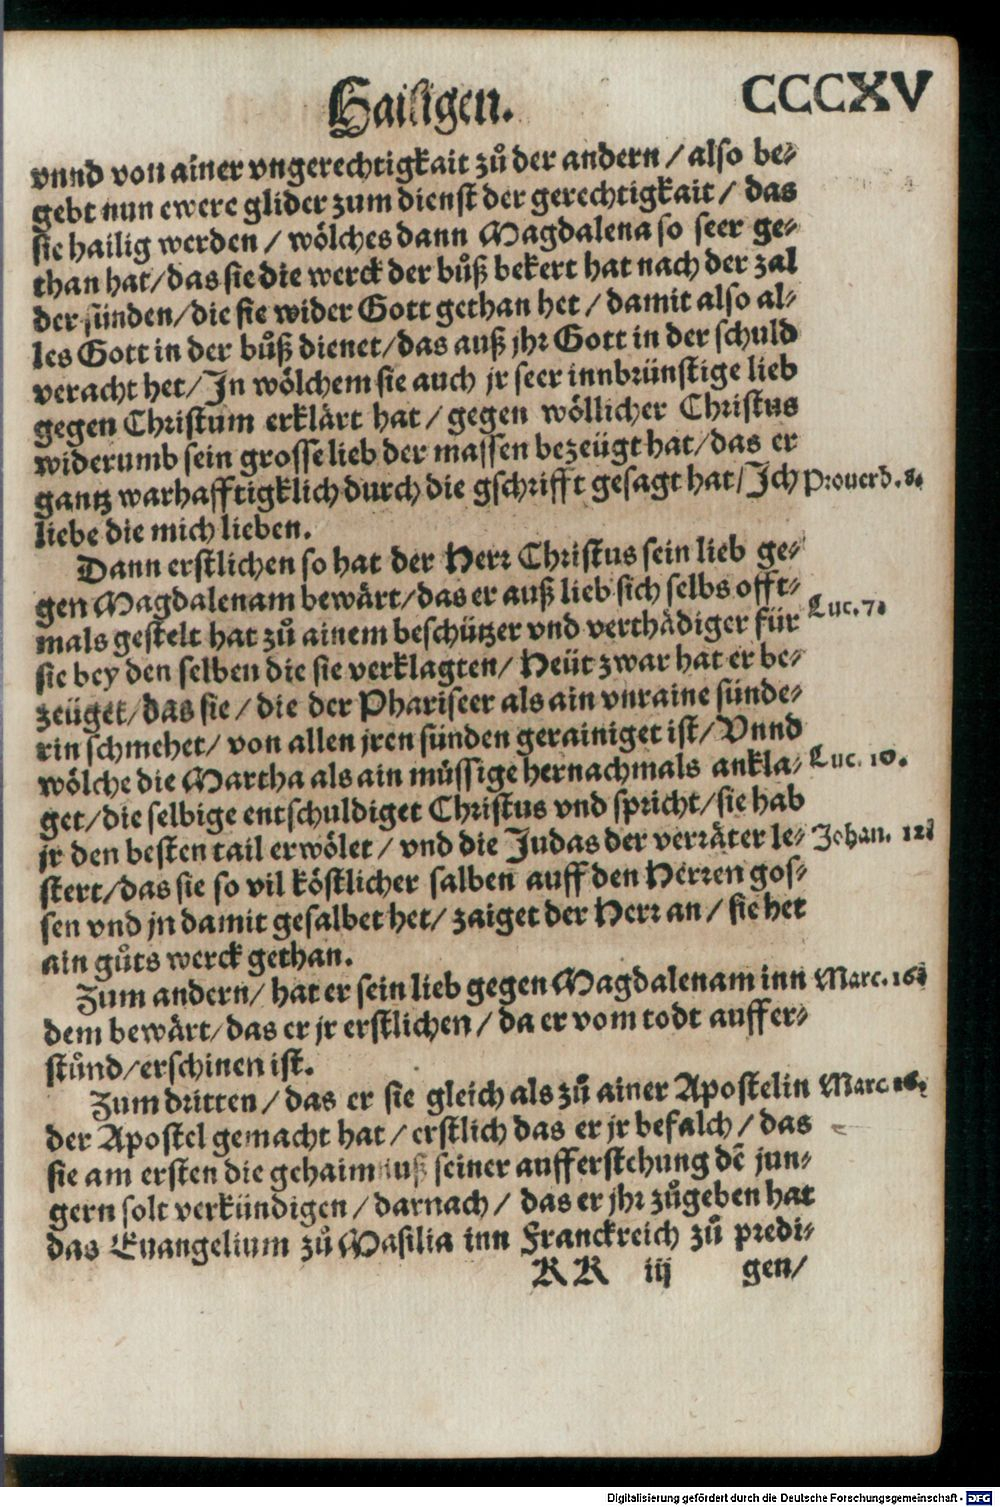 Hailigen. CCCXV
vnnd von ainer vngerechtigkait zů der andern / also be-
gebt nun ewere glider zum dienst der gerechtigkait / das
sie hailig werden / wölches dann Magdalena so seer ge-
than hat / das sie die werck der bůß bekert hat nach der zal
der sünden / die sie wider Gott gethan het / damit also al-
les Gott in der bůß dienet / das auß jhr Gott in der schuld
veracht het / In wölchem sie auch jr seer innbrünstige lieb
gegen Christum erklärt hat / gegen wöllicher Christus
widerumb sein grosse lieb der massen bezeügt hat / das er
gantz warhafftigklich durch die gschrifft gesagt hat / Ich Prouerb. 8.
liebe die mich lieben.
Dann erstlichen so hat der Herr Christus sein lieb ge-
gen Magdalenam bewärt / das er auß lieb sich selbs offt-
mals gestelt hat zů ainem beschützer vnd verthädiger für Luc. 7.
sie bey den selben die sie verklagten / Heüt zwar hat er be-
zeüget / das sie / die der Phariseer als ain vnraine sünde-
rin schmehet / von allen jren sünden gerainiget ist / Vnnd
wölche die Martha als ain müssige hernachmals ankla- Luc. 10.
get / die selbige entschuldiget Christus vnd spricht / sie hab
jr den besten tail erwölet / vnd die Judas der verräter le- Johan. 12.
stert / das sie so vil köstlicher salben auff den Herren gos-
sen vnd jn damit gesalbet het / zaiget der Herr an / sie het
ain gůts werck gethan.
Zum andern / hat er sein lieb gegen Magdalenam inn Marc. 16.
dem bewärt / das er jr erstlichen / da er vom todt auffer-
stůnd / erschinen ist.
Zum dritten / das er sie gleich als zů ainer Apostelin Marc. 16.
der Apostel gemacht hat / erstlich das er jr befalch / das
sie am ersten die gehaimnuß seiner aufferstehung dē jun-
gern solt verkündigen / darnach / das er jhr zůgeben hat
das Euangelium zů Masilia inn Franckreich zů predi-
RR iij gen /
Digitalisierung gefördert durch die Deutsche Forschungsgemeinschaft - DFG